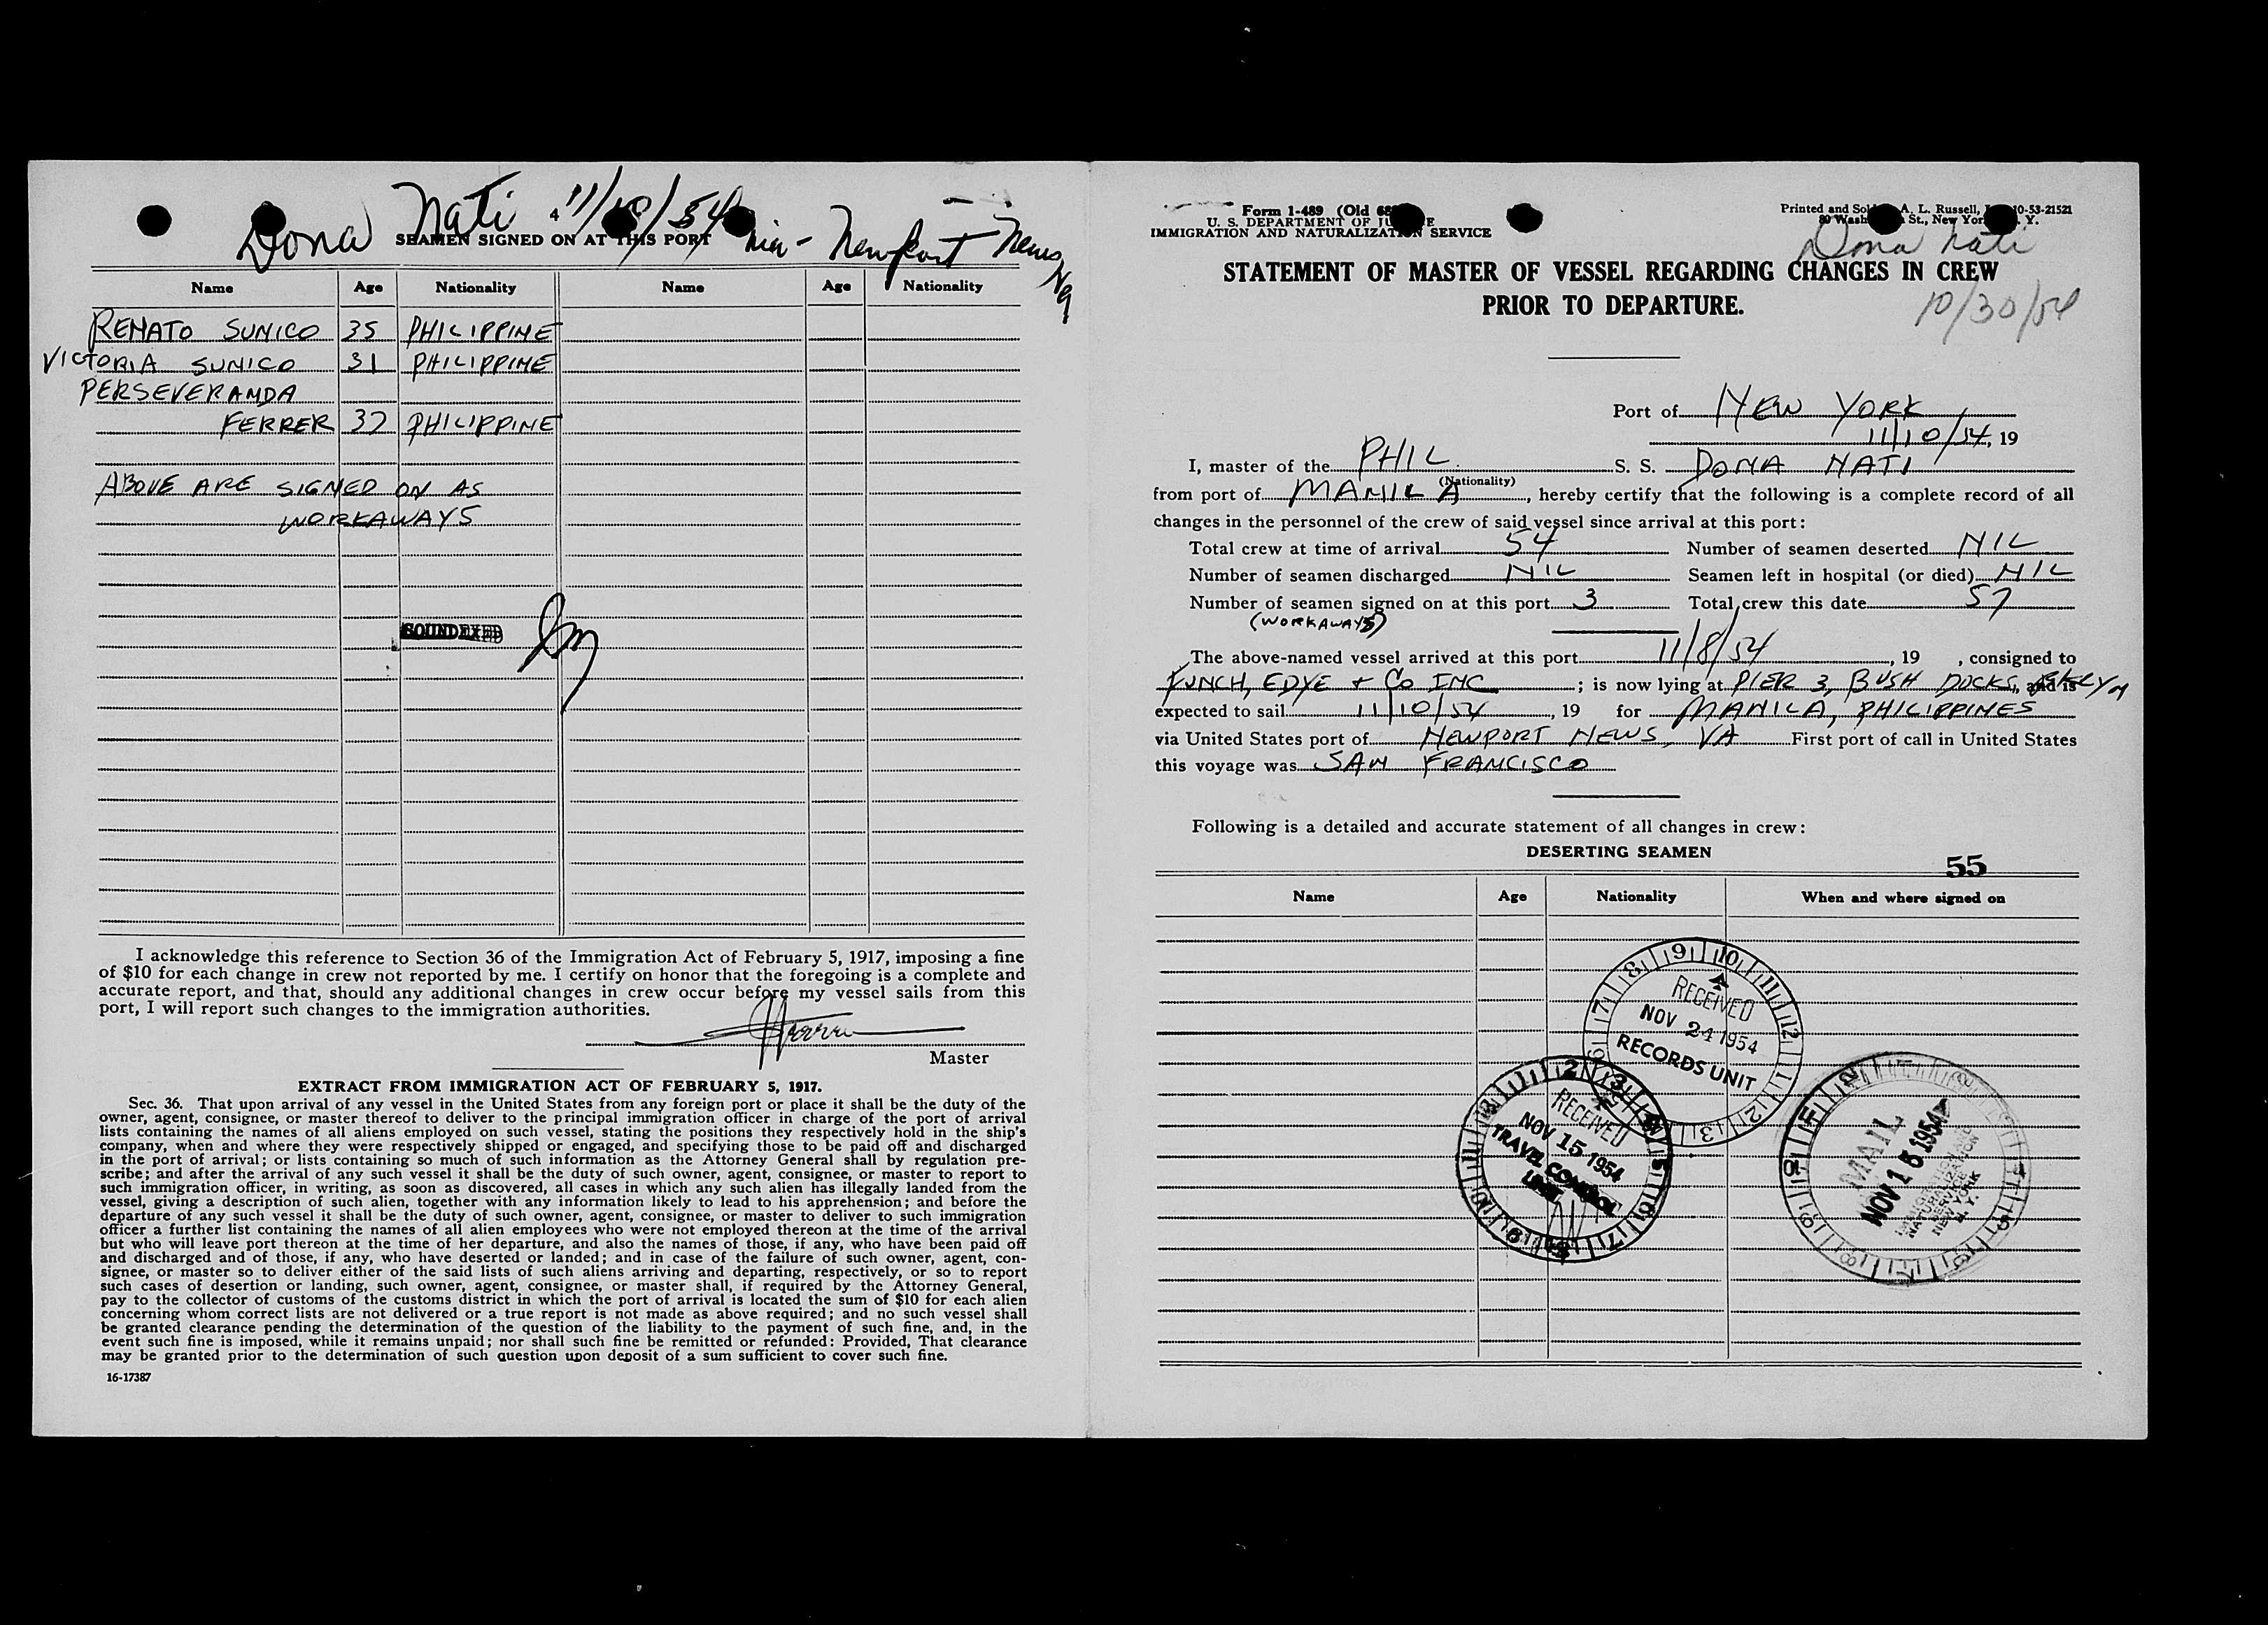 Dona Nati 4 11/10/54
via - Newport News
SEAMEN SIGNED ON AT THIS PORT
Name Age Nationality Name Age Nationality
RENATO SUNICO 35 PHILIPPINE
VICTORIA SUNICO 31 PHILIPPINE
PERSEVERANDA
FERRER 37 PHILIPPINE
ABOVE ARE SIGNED ON AS
WORKAWAYS
SOUNDEXED
I acknowledge this reference to Section 36 of the Immigration Act of February 5, 1917, imposing a fine
of $10 for each change in crew not reported by me. I certify on honor that the foregoing is a complete and
accurate report, and that, should any additional changes in crew occur before my vessel sails from this
port, I will report such changes to the immigration authorities.
Master
EXTRACT FROM IMMIGRATION ACT OF FEBRUARY 5, 1917.
Sec. 36. That upon arrival of any vessel in the United States from any foreign port or place it shall be the duty of the
owner, agent, consignee, or master thereof to deliver to the principal immigration officer in charge of the port of arrival
lists containing the names of all aliens employed on such vessel, stating the positions they respectively hold in the ship's
company, when and where they were respectively shipped or engaged, and specifying those to be paid off and discharged
in the port of arrival; or lists containing so much of such information as the Attorney General shall by regulation pre-
scribe; and after the arrival of any such vessel it shall be the duty of such owner, agent, consignee, or master to report to
such immigration officer, in writing, as soon as discovered, all cases in which any such alien has illegally landed from the
vessel, giving a description of such alien, together with any information likely to lead to his apprehension; and before the
departure of any such vessel it shall be the duty of such owner, agent, consignee, or master to deliver to such immigration
officer a further list containing the names of all alien employees who were not employed thereon at the time of the arrival
but who will leave port thereon at the time of her departure, and also the names of those, if any, who have been paid off
and discharged and of those, if any, who have deserted or landed; and in case of the failure of such owner, agent, con-
signee, or master so to deliver either of the said lists of such aliens arriving and departing, respectively, or so to report
such cases of desertion or landing, such owner, agent, consignee, or master shall, if required by the Attorney General,
pay to the collector of customs of the customs district in which the port of arrival is located the sum of $10 for each alien
concerning whom correct lists are not delivered or a true report is not made as above required; and no such vessel shall
be granted clearance pending the determination of the question of the liability to the payment of such fine, and, in the
event such fine is imposed, while it remains unpaid; nor shall such fine be remitted or refunded: Provided, That clearance
may be granted prior to the determination of such question upon deposit of a sum sufficient to cover such fine.
16-17387
Form I-489 (Old
U. S. DEPARTMENT OF
IMMIGRATION AND NATURALIZATION SERVICE
Printed and A. L. Russell, 10-53-21521
80 St., New York Y.
Dona Nati
STATEMENT OF MASTER OF VESSEL REGARDING CHANGES IN CREW
PRIOR TO DEPARTURE.
10/30/54
Port of NEW YORK
11/10/54, 19
I, master of the PHIL S. S. DONA NATI
(Nationality)
from port of MANILA, hereby certify that the following is a complete record of all
changes in the personnel of the crew of said vessel since arrival at this port:
Total crew at time of arrival 54 Number of seamen deserted NIL
Number of seamen discharged NIL Seamen left in hospital (or died) NIL
Number of seamen signed on at this port 3 Total crew this date 57
(WORKAWAYS)
The above-named vessel arrived at this port 11/8/54, 19 , consigned to
FUNCH, EDYE & CO INC ; is now lying at PIER 3, BUSH DOCKS, BKLYN and is
expected to sail 11/10/54, 19 for MANILA, PHILIPPINES
via United States port of NEWPORT NEWS, VA First port of call in United States
this voyage was SAN FRANCISCO
Following is a detailed and accurate statement of all changes in crew:
DESERTING SEAMEN
55
Name Age Nationality When and where signed on
RECEIVED
NOV 24 1954
RECORDS UNIT
RECEIVED
NOV 15 1954
TRAVEL CONTROL
UNIT
MAIL
NOV 15 1954
IMMIGRATION AND
NATURALIZATION
SERVICE
NEW YORK
N. Y.